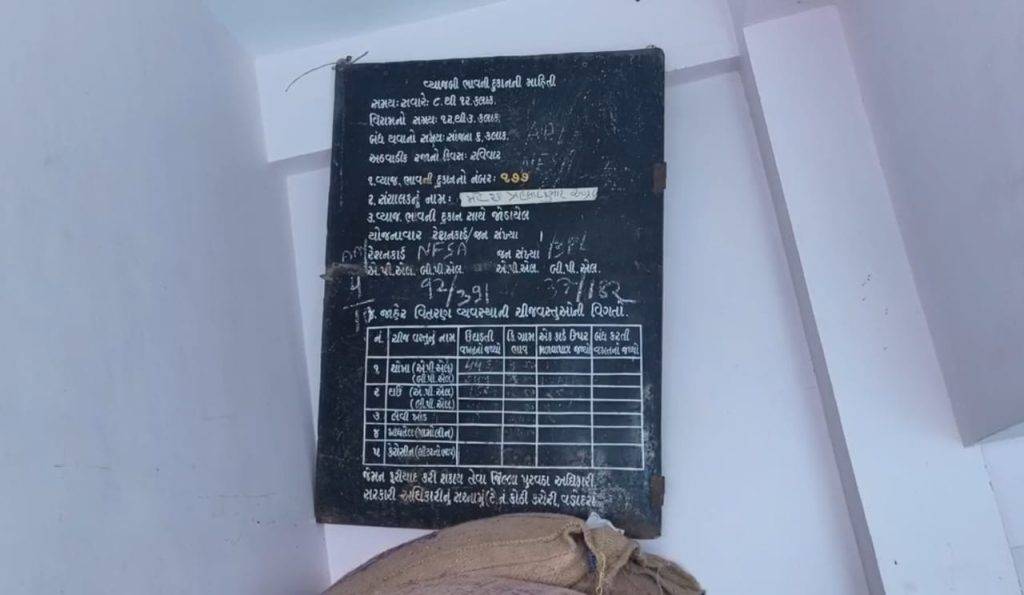 વ્યાજબી ભાવની દુકાનની માહિતી
સમયઃ સવારેઃ ૮ થી ૧૨ કલાક.
વિરામનો સમયઃ ૧૨ થી ૩ કલાક
બંધ થવાનો સમયઃ સાંજના ૬ કલાક.
અઠવાડીક રજાનો દિવસઃ રવિવાર
૧. વ્યાજ. ભાવની દુકાનનો નંબરઃ ૧૭૭
૨. સંચાલકનું નામઃ
૩. વ્યાજ. ભાવની દુકાન સાથે જોડાયેલ
યોજનાવાર રેશનકાર્ડ/જન સંખ્યા
રેશનકાર્ડ NFSA જન સંખ્યા BPL
એ.પી.એલ. બી.પી.એલ. એ.પી.એલ. બી.પી.એલ.
92/391 37/182
૪. જાહેર વિતરણ વ્યવસ્થાની ચીજવસ્તુઓની વિગતો.
નં. ચીજ વસ્તુનું નામ ઉઘડતી વખતનો જથ્થો કિ.ગ્રામ ભાવ એક કાર્ડ ઉપર મળવાપાત્ર જથ્થો બંધ કરતી વખતનો જથ્થો
૧ ચોખા (એ.પી.એલ)
(બી.પી.એલ)
૨ ઘઉં (એ.પી.એલ)
(બી.પી.એલ)
૩ લેવી ખાંડ
૪ ખાદ્યતેલ (પામોલીન)
૫ કેરોસીન (લીટરનો ભાવ)
જેમને ફરીયાદ કરી શકાય તેવા જિલ્લા પુરવઠા અધિકારી
સરકારી અધિકારીનું સરનામું (ટે.નં. કોઠી કચેરી, વડોદરા